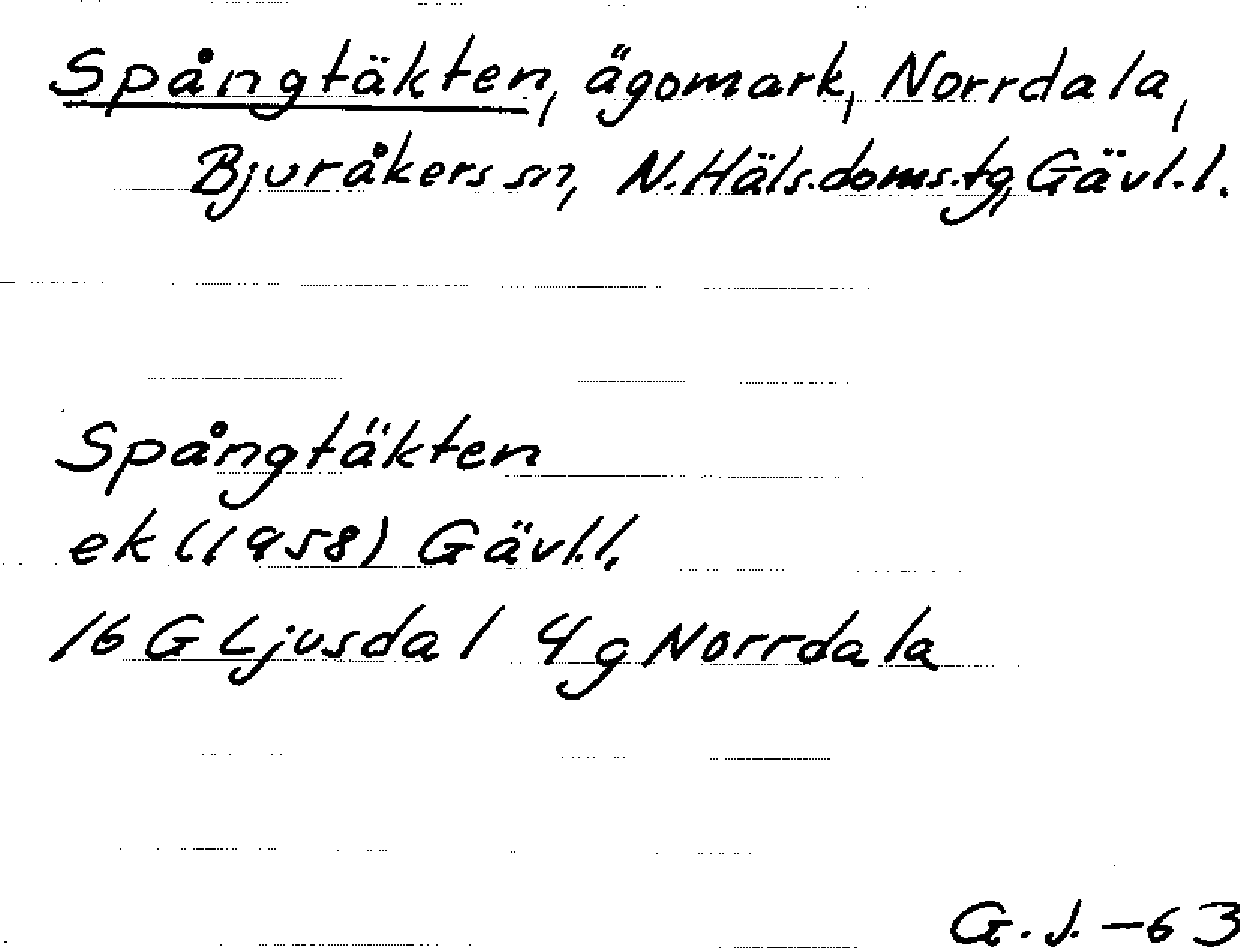 Spångtäkten, ägomark, Norrdala,
Bjuråkers sn, N.Häls.doms.tg, Gävl.l.
Spångtäkten
ek (1958) Gävl.l.
16 G Ljusdal 4 g Norrdala
G.J. -63